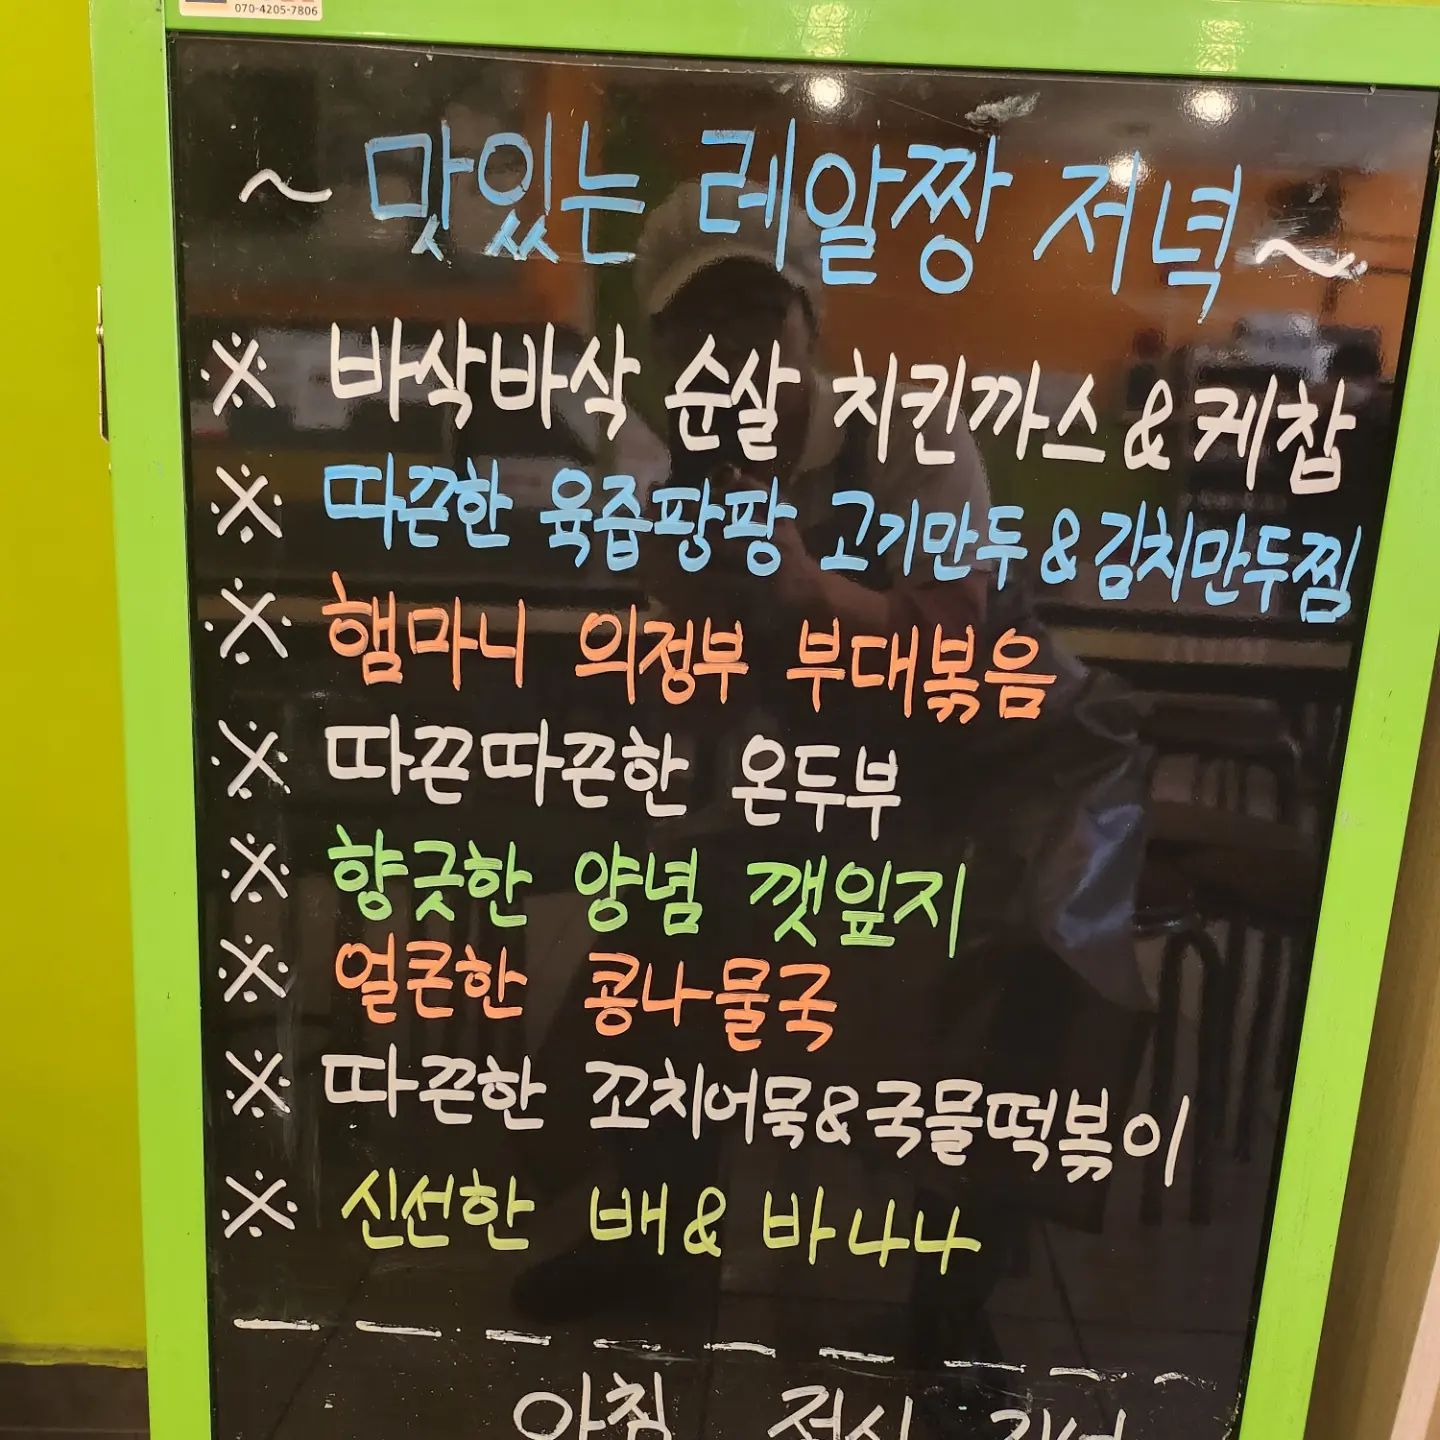 070-4205-7806
~ 맛있는 레알짱 저녁 ~
※ 바삭바삭 순살 치킨까스 & 케찹
※ 따끈한 육즙팡팡 고기만두 & 김치만두찜
※ 햄마니 의정부 부대볶음
※ 따끈따끈한 온두부
※ 향긋한 양념 깻잎지
※ 얼큰한 콩나물국
※ 따끈한 꼬치어묵&국물떡볶이
※ 신선한 배 & 바나나
아침 점심 저녁